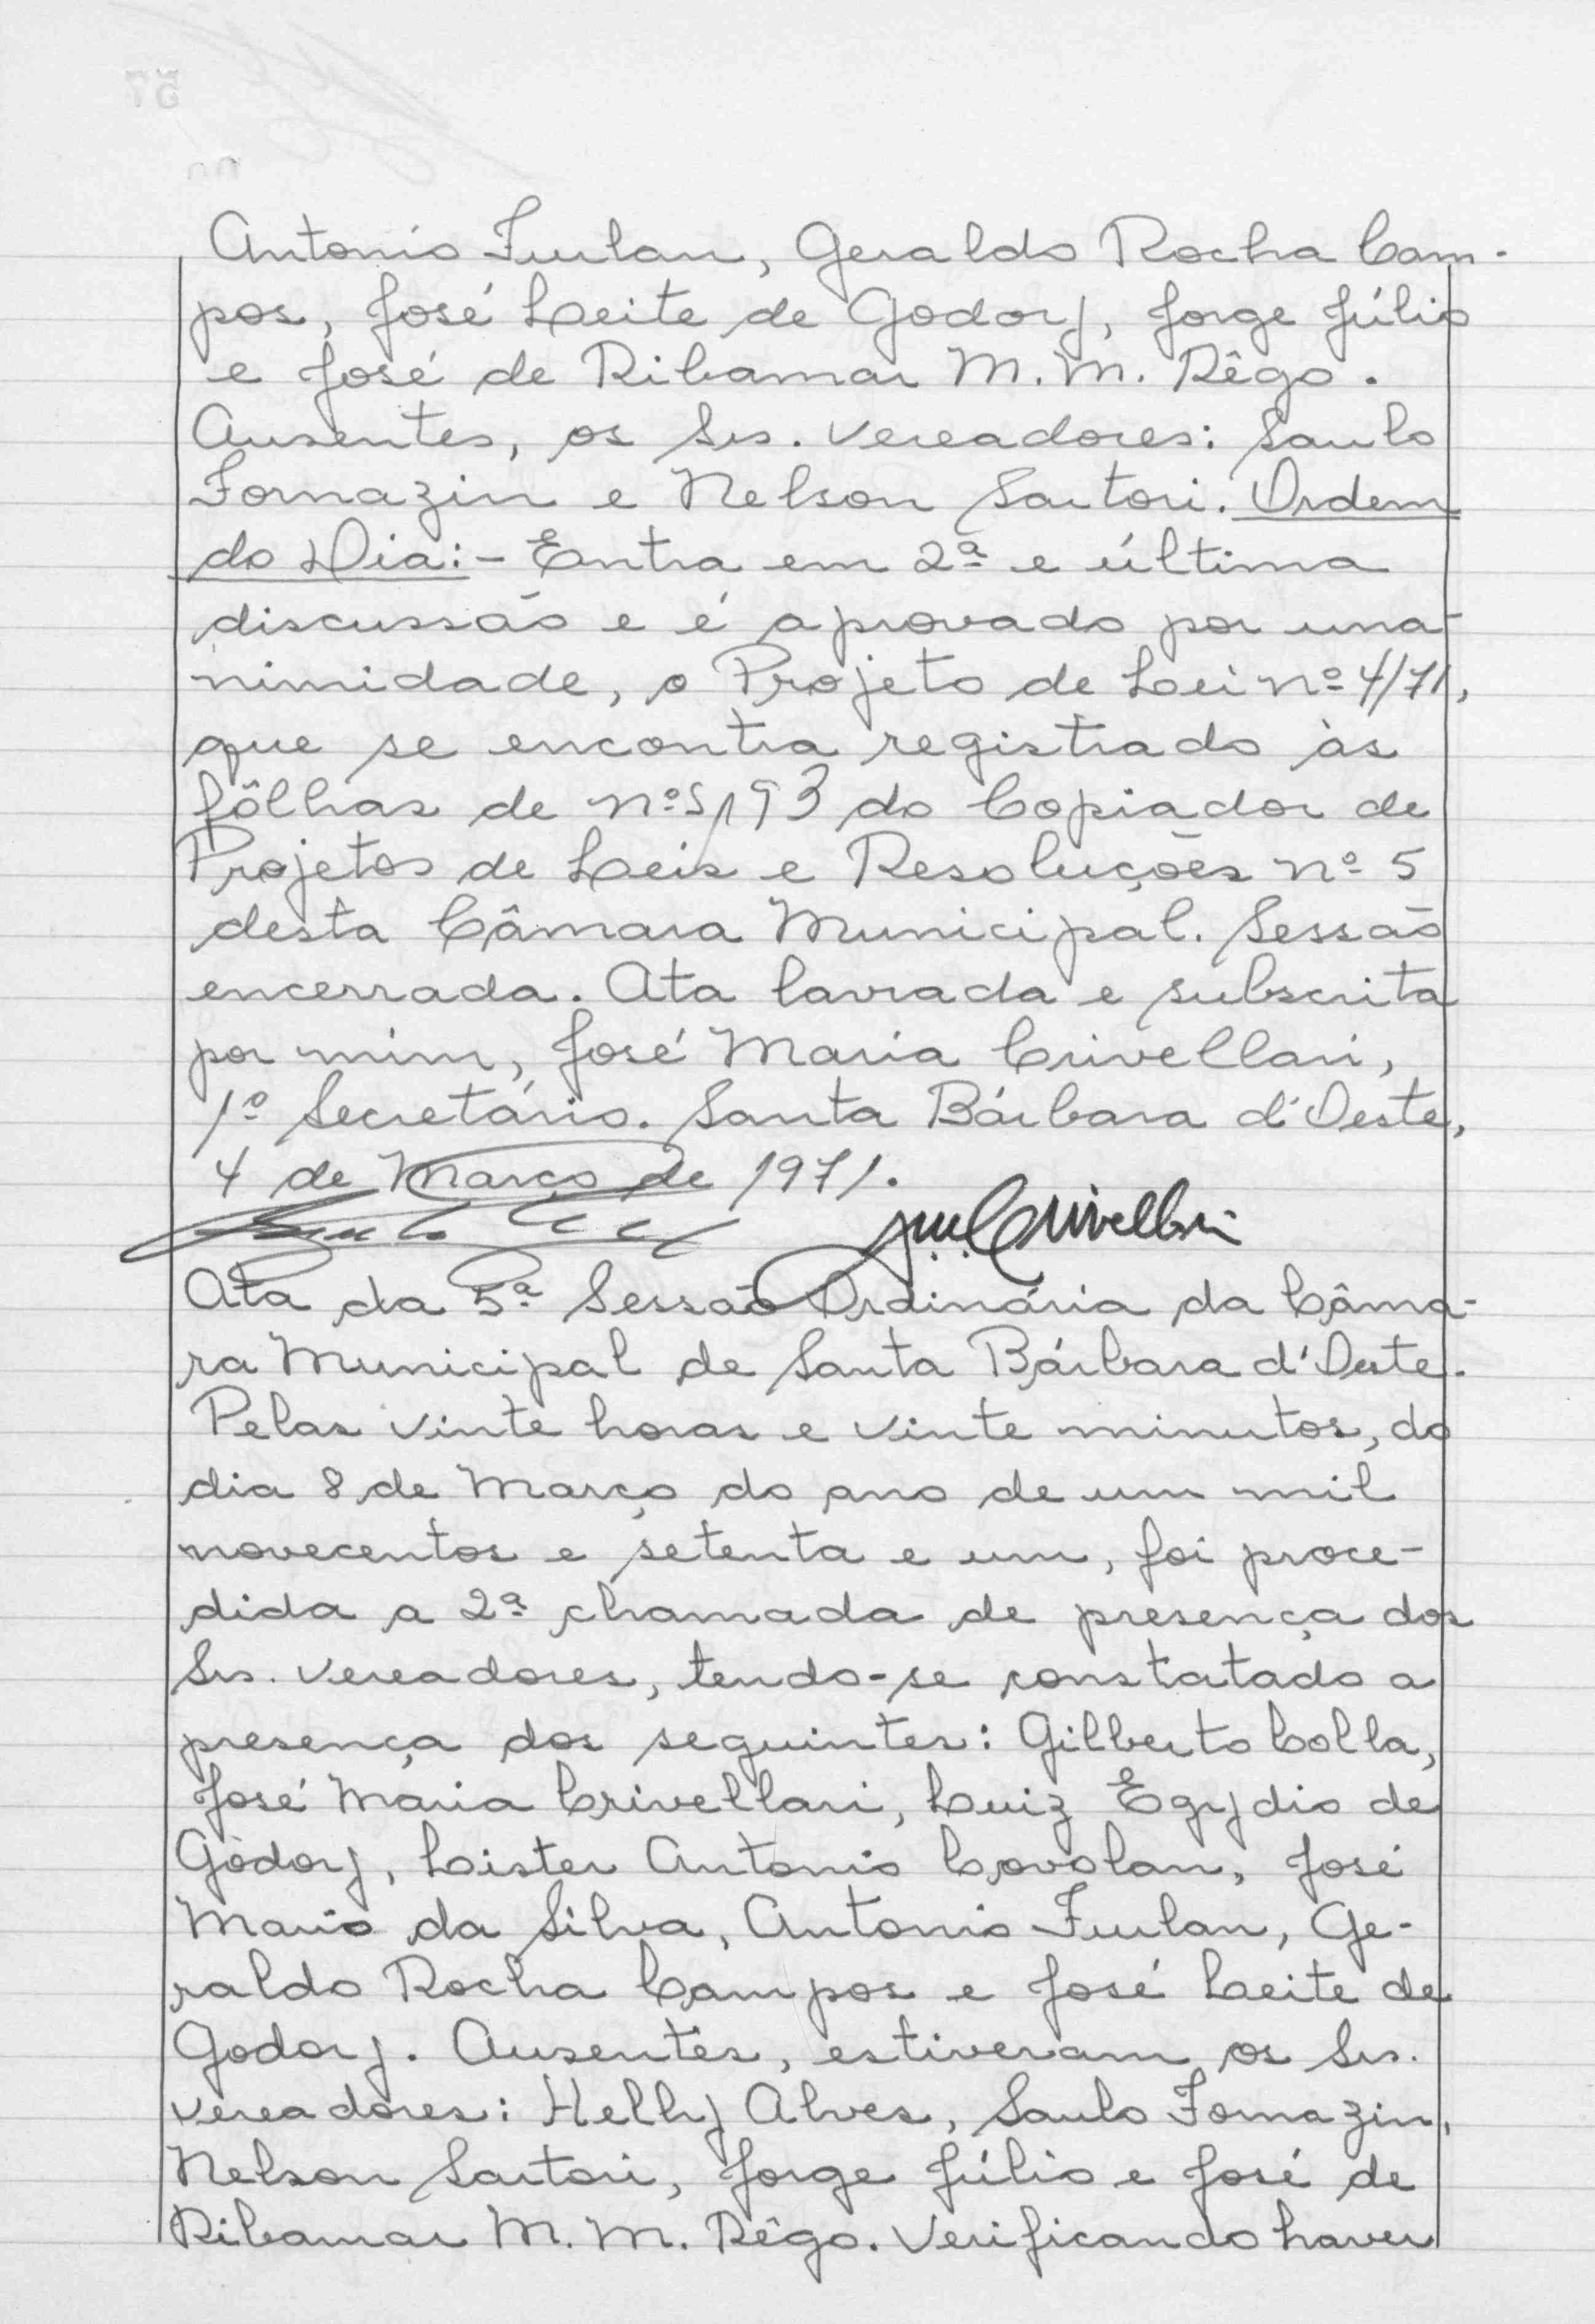 Antonio Furlan, Geraldo Rocha Cam-
pos, José Leite de Godoy, Jorge Júlio
e José de Ribamar M. M. Rêgo.
Ausentes, os Srs. Vereadores: Saulo
Fornazin e Nelson Sartori. Ordem
do Dia:- Entra em 2ª e última
discussão e é aprovado por una-
nimidade, o Projeto de Lei nº 4/71,
que se encontra registrado às
fôlhas de nºs 193 do Copiador de
Projetos de Leis e Resoluções nº 5
desta Câmara Municipal. Sessão
encerrada. Ata lavrada e subscrita
por mim, José Maria Crivellari,
1º Secretário. Santa Bárbara d'Oeste,
4 de Março de 1971.
Crivellari
Ata da 5ª Sessão Ordinária da Câma-
ra Municipal de Santa Bárbara d'Oeste.
Pelas vinte horas e vinte minutos, do
dia 8 de Março do ano de um mil
novecentos e setenta e um, foi proce-
dida a 2ª chamada de presença dos
Srs. Vereadores, tendo-se constatado a
presença dos seguintes: Gilberto Colla,
José Maria Crivellari, Luiz Egydio de
Godoy, Lister Antonio Covolan, José
Mario da Silva, Antonio Furlan, Ge-
raldo Rocha Campos e José Leite de
Godoy. Ausentes, estiveram os Srs.
Vereadores: Helly Alves, Saulo Fornazin,
Nelson Sartori, Jorge Júlio e José de
Ribamar M. M. Rêgo. Verificando haver